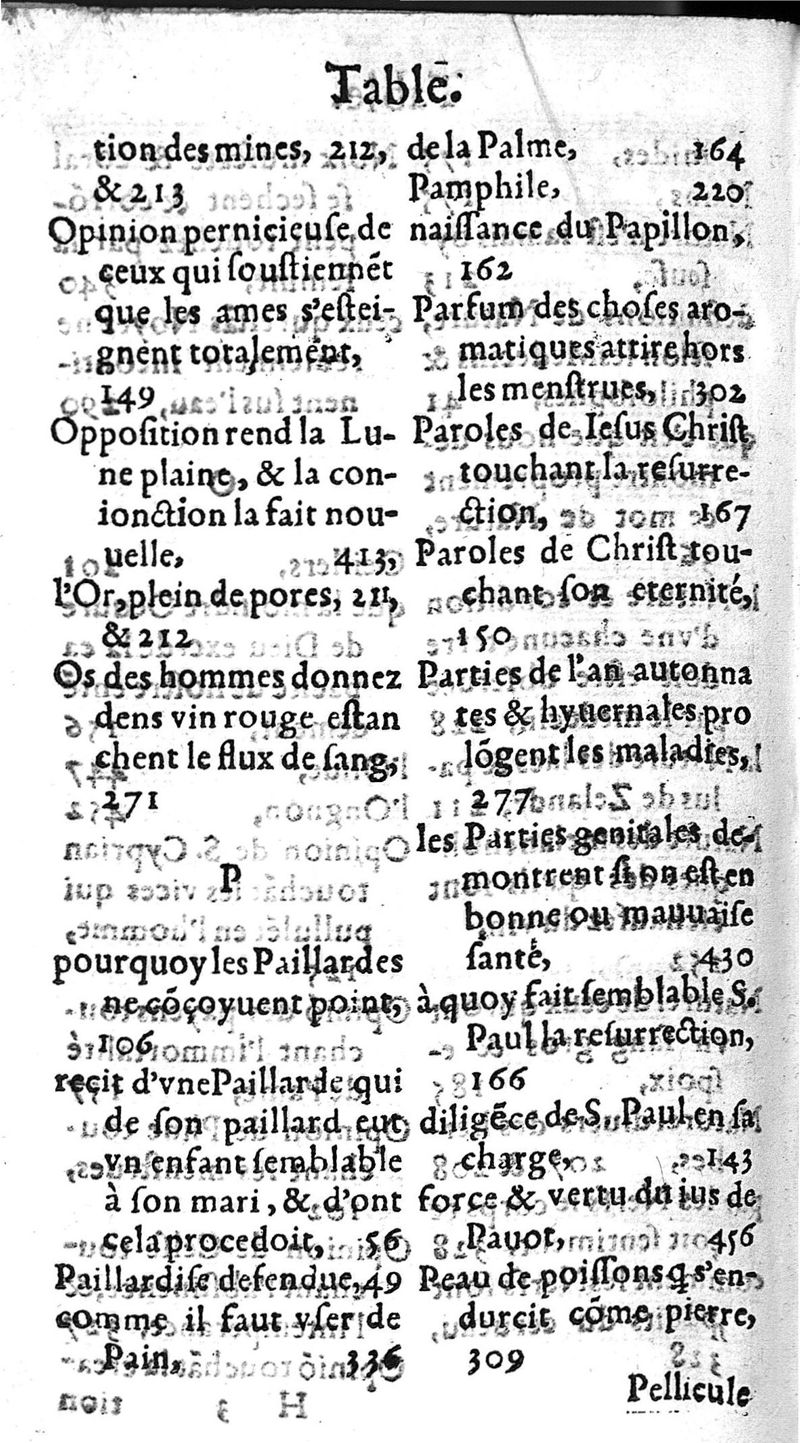 Table.
tion des mines, 212,
& 213
Opinion pernicieuſe de
ceux qui ſouſtiennẽt
que les ames s'eſtei-
gnent totalemẽt,
149
Oppoſition rend la Lu-
ne plaine, & la con-
ionction la fait nou-
uelle, 413,
l'Or, plein de pores, 211,
& 212
Os des hommes donnez
dens vin rouge eſtan
chent le flux de ſang,
271
P
pourquoy les Paillardes
ne cõçoyuent point,
106
recit d'vne Paillarde qui
de ſon paillard eut
vn enfant ſemblable
à ſon mari, & d'ont
cela procedoit, 56
Paillardiſe defendue, 49
comme il faut vſer de
Pain, 336
de la Palme, 164
Pamphile, 220
naiſſance du Papillon,
162
Parfum des choſes aro-
matiques attire hors
les menſtrues, 302
Paroles de Ieſus Chriſt
touchant la reſurre-
ction, 167
Paroles de Chriſt tou-
chant ſon eternité,
150
Parties de l'an autonna
tes & hyuernales pro
lõgent les maladies,
277
les Parties genitales de-
montrent ſi on eſt en
bonne ou mauuaiſe
ſanté, 430
à quoy fait ſemblable S.
Paul la reſurrection,
166
diligẽce de S. Paul en ſa
charge, 143
force & vertu du ius de
Pauot, 456
Peau de poiſſons q̃ s'en-
durcit cõme pierre,
309
Pellicule